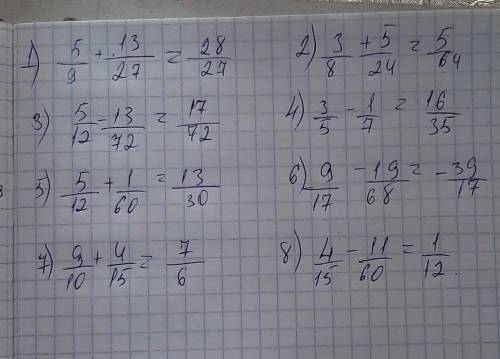 1) 5/9 + 13/27 = 28/27 2) 3/8 + 5/24 = 5/64
3) 5/12 - 13/72 = 17/72 4) 3/5 - 1/7 = 16/35
5) 5/12 + 1/60 = 13/30 6) 9/17 - 19/68 = - 39/17
7) 9/10 + 4/15 = 7/6 8) 4/15 - 11/60 = 1/12.